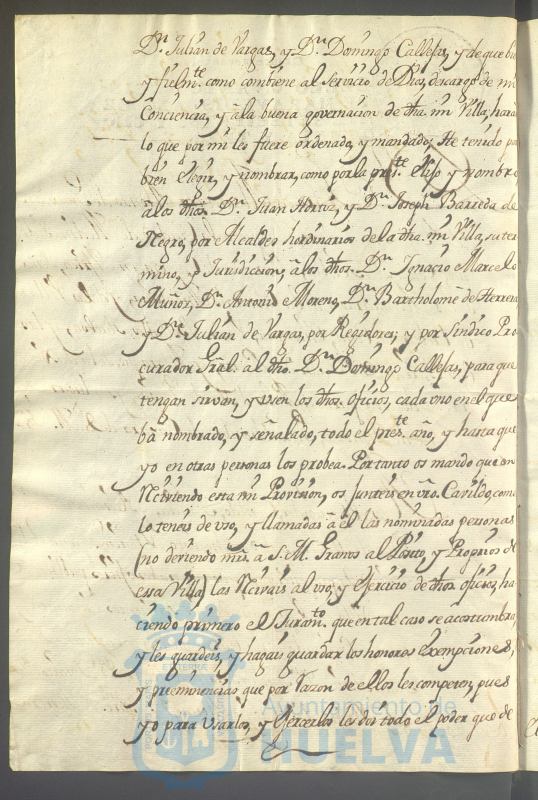 Dn. Julián de Vargas, y Dn. Domingo Callejas, y de que bie
y fielmte. como combiene al Servicio de Dios, descargo de mi
Conciencia, y à la buena governacion de dha. mi Villa, harà
lo que por mi les fuere ordenado, y mandado; He tenido por
bien elegir, y nombrar, como por la prste. elijo y nombro
à los dhos. Dn. Juan Hortiz, y Dn. Joseph Barieda de
Negro, por Alcaldes hordinarios de la dha. mi Vª. su ter
mino, y Jurisdiccion; à los dhos. Dn. Ignacio Marcelo
Muñoz, Dn. Antonio Moreno, Dn. Bartholomè de Herrera
y Dn. Julián de Vargas, por Regidores; y por Sindico Pro
curador Gral. al dho. Dn. Domingo Callejas, para que
tengan sirvan, y usen los dhos. oficios, cada uno en el que
bà nombrado, y señalado, todo el preste. año, y hasta que
yo en otras personas los probea. Por tanto os mando que en
Reciviendo esta mi Provision, os junteis en vro. Cavildo, como
lo teneis de uso, y llamadas à èl las nominadas personas
(no deviendo mrs. à S. M. Granos al Posito, y Proprios de
essa Villa) las Recivais al uso, y Ejercicio de dhos. oficios, ha
ciendo primero el Juramto. que en tal caso se acostumbra,
y les guardeis, y hagais guardar los honores Exempciones,
y preeminencias que por razon de ellos les competen, pues
yo para usarlos, y Ejercerlos les doi todo el poder que de
Ayuntamiento de
HUELVA